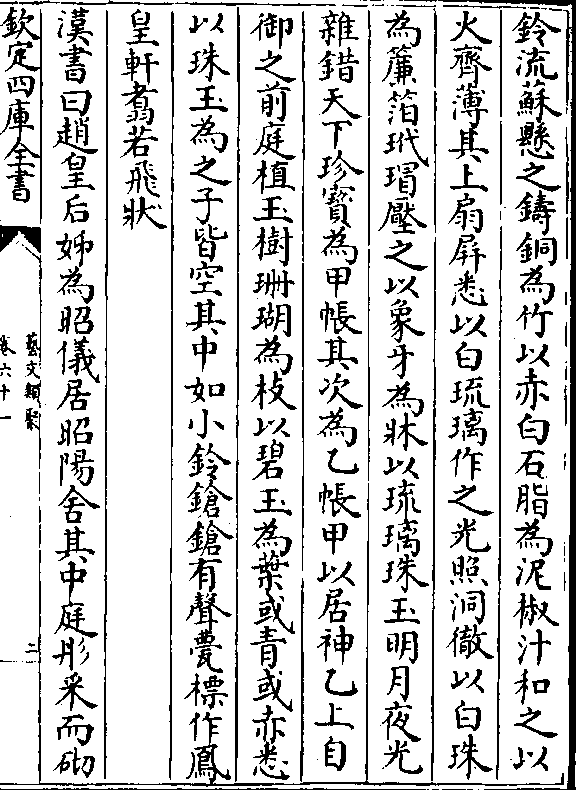 鈴流蘇懸之鑄銅為竹以赤白石脂為泥椒汁和之以
火齊薄其上扇屏悉以白琉璃作之光照洞徹以白珠
為簾箔玳瑁壓之以象牙為牀以琉璃珠玉明月夜光
雜錯天下珍寶為甲帳其次為乙帳甲以居神乙上自
御之前庭植玉樹珊瑚為枝以碧玉為葉或青或赤悉
以珠玉為之子皆空其中如小鈴鎗鎗有聲甍標作鳳
皇軒翥若飛狀
漢書曰趙皇后姊為昭儀居昭陽舍其中庭彤采而砌
欽定四庫全書
藝文類聚
卷六十一
二